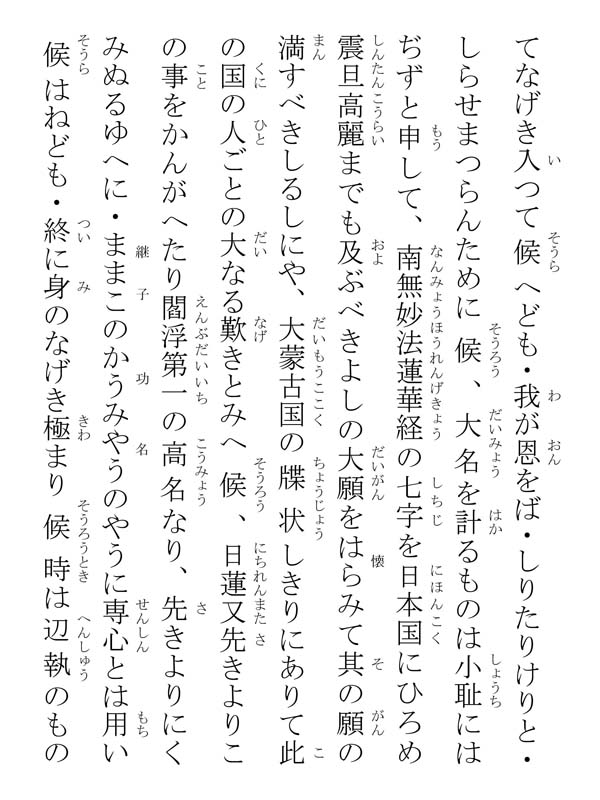 てなげき入つて候へども・我が恩をば・しりたりけりと・
しらせまつらんために候、大名を計るものは小耻には
ぢずと申して、南無妙法蓮華経の七字を日本国にひろめ
震旦高麗までも及ぶべきよしの大願をはらみて其の願の
満すべきしるしにや、大蒙古国の牒状しきりにありて此
の国の人ごとの大なる歎きとみへ候、日蓮又先きよりこ
の事をかんがへたり閻浮第一の高名なり、先きよりにく
みぬるゆへに・ままこのかうみやうのやうに専心とは用い
候はねども・終に身のなげき極まり候時は辺執のもの